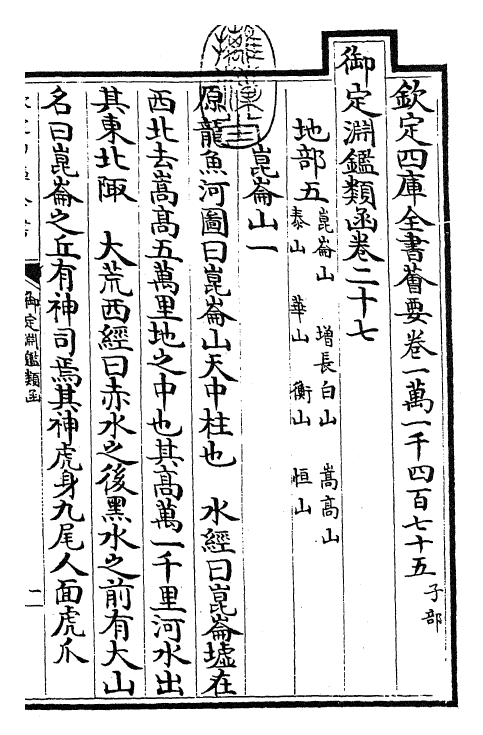 欽定四庫全書薈要卷一萬一千四百七十五 子部
御定淵鑑類函卷二十七
地部五 崑崙山 增長白山 嵩高山
泰山 華山 衡山 恒山
崑崙山一
原龍魚河圖曰崑崙山天中柱也 水經曰崑崙墟在
西北去嵩高五萬里地之中也其高萬一千里河水出
其東北陬 大荒西經曰赤水之後黑水之前有大山
名曰崑崙之丘有神司焉其神虎身九尾人面虎爪
御定淵鑑類函
二